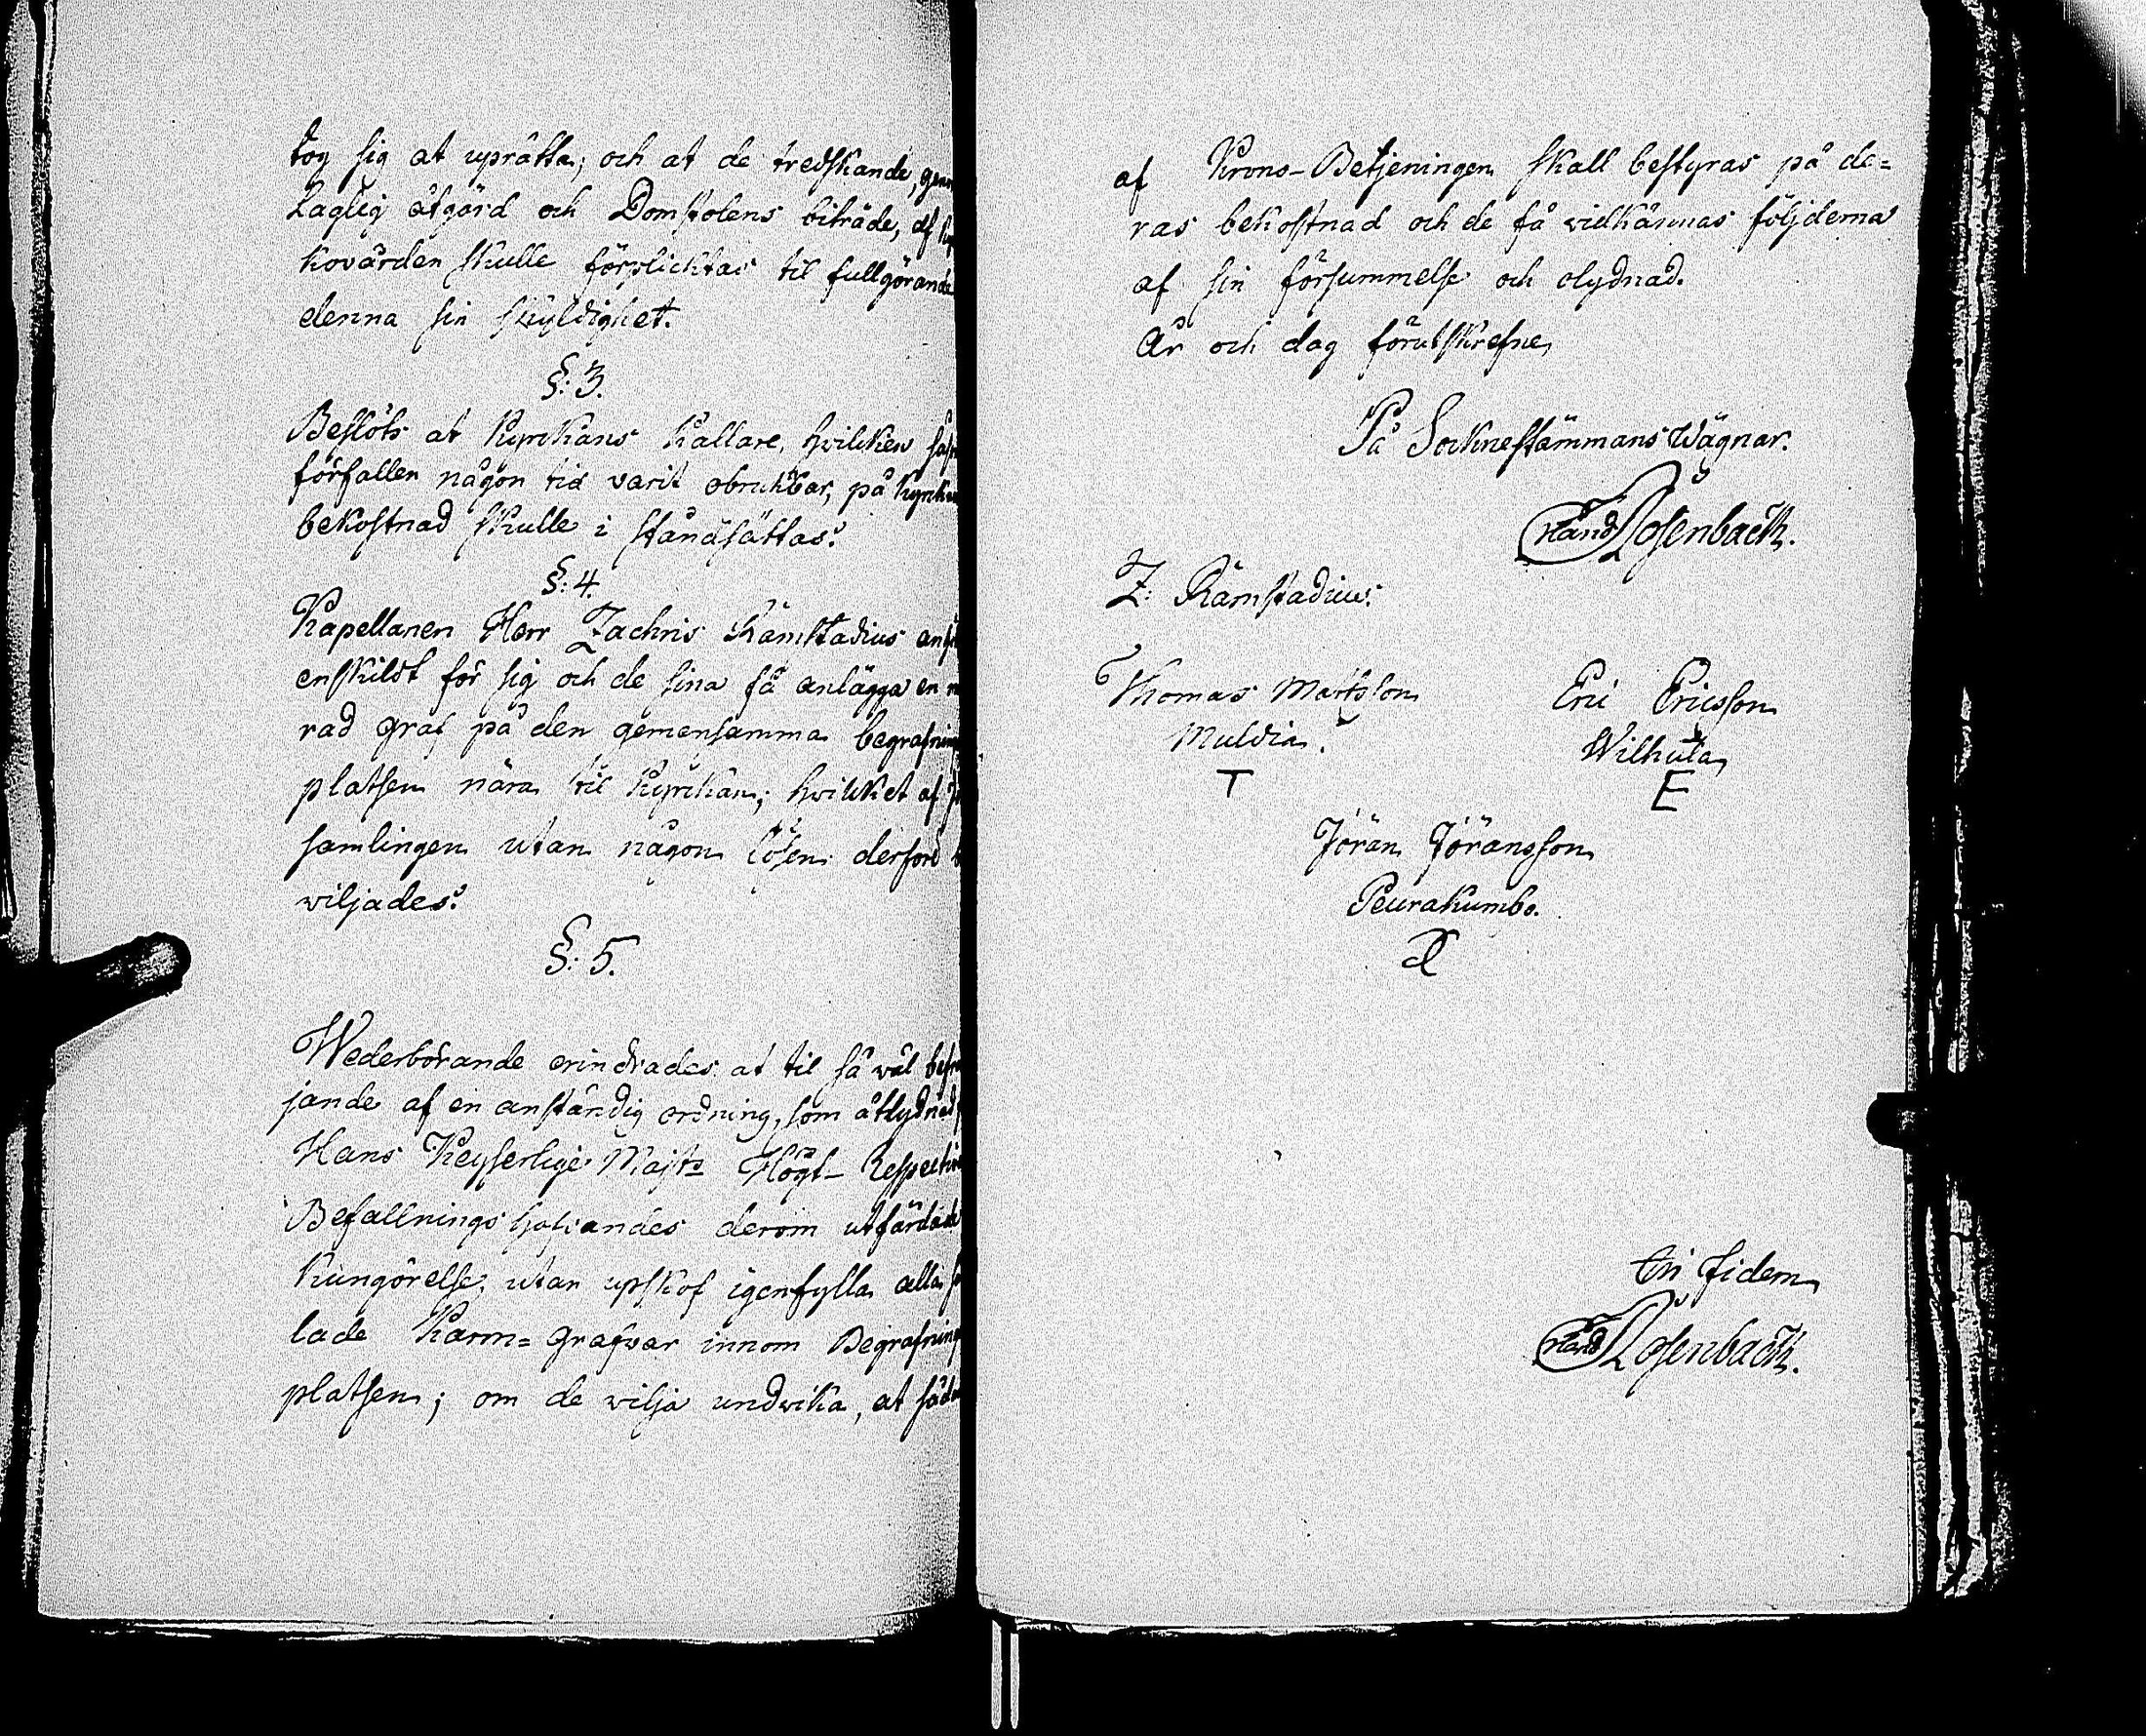 tog sig at uprätta; och at de tredskande, gen
Laglig åtgärd och Domstolens biträde, af Kyr
kovärden skulle förplicktas til fullgörande
denna sin skyldighet.
§: 3.
Beslöts at Kyrckans Källare, hvilcken
förfallen någon tid varit obrukbar, på Kyrckan
bekostnad skulle i stånd sättas.
§: 4.
Kapellanen Herr Zachris Rämstadius
enskildt för sig och de sina få anlägga en
rad graf på den gemensamma begrafnings
platsen nära til Kyrckan; hvilcket af
samlingen utan någon lösen derföre
wiljades.
§: 5.
Wederbörande erindrades at til så väl
jande af en anständig ordning, som åtlydnad
Hans Keyserlige Majts Högt- Respective
Befallningshafvandes derom utfärdade
Kungörelse, utan upskof igenfylla alla
lade Karm= grafvar innom Begrafnings
platsen; om de wilja undvika, at
af Krono-Betjeningen skall bestyras på de=
ras bekostnad och de få vidkännas följderna
af sin försummelse och olydnad.
År och dag förutskrefne
På Socknestämmans Wägnar.
Rosenback.
Z. Rämstadius.
Thomas Mattsson Eric Ericsson
Muldia. Wilhula
T E
Jöran Jöransson
Peurakumbo.
In fidem
Rosenback.